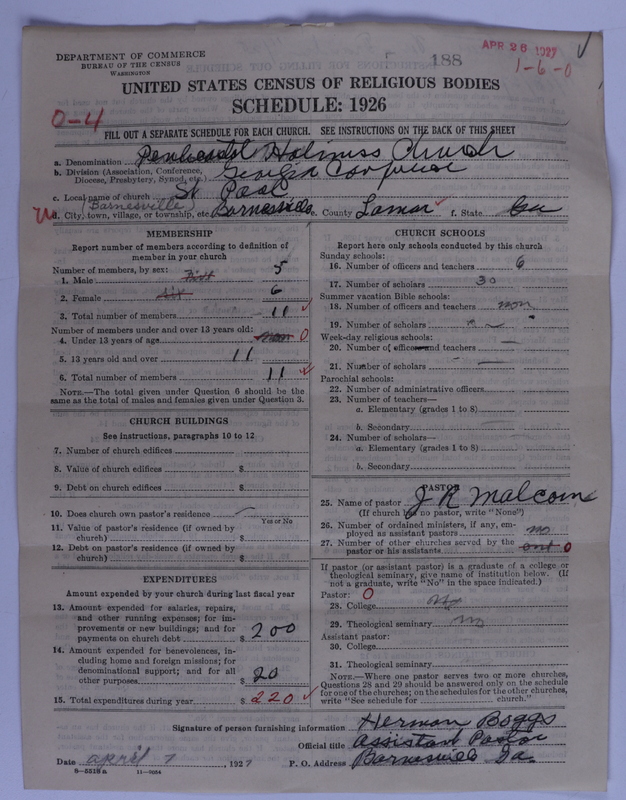 DEPARTMENT OF COMMERCE
BUREAU OF THE CENSUS
WASHINGTON
188
APR 26 1927
1-6-0
UNITED STATES CENSUS OF RELIGIOUS BODIES
SCHEDULE: 1926
0-4
FILL OUT A SEPARATE SCHEDULE FOR EACH CHURCH. SEE INSTRUCTIONS ON THE BACK OF THIS SHEET
a. Denomination Holiness Church
b. Division (Association, Conference, Diocese, Presbytery, Synod, etc.) Georgia
c. Local name of church St Paul
Barnesville
d. City, town, village, or township, etc. Barnesville e. County Lamar f. State Ga
MEMBERSHIP
Report number of members according to definition of member in your church
Number of members, by sex:
1. Male 5
2. Female six 6
3. Total number of members 11
Number of members under and over 13 years old:
4. Under 13 years of age non 0
5. 13 years old and over 11
6. Total number of members 11
NOTE.—The total given under Question 6 should be the same as the total of males and females given under Question 3.
CHURCH BUILDINGS
See instructions, paragraphs 10 to 12
7. Number of church edifices
8. Value of church edifices $
9. Debt on church edifices $
10. Does church own pastor's residence
Yes or No
11. Value of pastor's residence (if owned by church) $
12. Debt on pastor's residence (if owned by church) $
EXPENDITURES
Amount expended by your church during last fiscal year
13. Amount expended for salaries, repairs, and other running expenses; for improvements or new buildings; and for payments on church debt $ 200
14. Amount expended for benevolences, including home and foreign missions; for denominational support; and for all other purposes $ 20
15. Total expenditures during year $ 220
CHURCH SCHOOLS
Report here only schools conducted by this church
Sunday schools:
16. Number of officers and teachers 6
17. Number of scholars 30
Summer vacation Bible schools:
18. Number of officers and teachers non
19. Number of scholars
Week-day religious schools:
20. Number of officers and teachers
21. Number of scholars
Parochial schools:
22. Number of administrative officers
23. Number of teachers—
a. Elementary (grades 1 to 8)
b. Secondary
24. Number of scholars—
a. Elementary (grades 1 to 8)
b. Secondary
PASTOR
25. Name of pastor J R Malcome
(If church has no pastor, write "None")
26. Number of ordained ministers, if any, employed as assistant pastors no
27. Number of other churches served by the pastor or his assistants 0
If pastor (or assistant pastor) is a graduate of a college or theological seminary, give name of institution below. (If not a graduate, write "No" in the space indicated.)
Pastor: 0
28. College No
29. Theological seminary No
Assistant pastor:
30. College
31. Theological seminary
NOTE.—Where one pastor serves two or more churches, Questions 28 and 29 should be answered only on the schedule for one of the churches; on the schedules for the other churches, write "See schedule for church."
Signature of person furnishing information Herman Boggs
Official title Assistant Pastor
Date april 7, 1927 P. O. Address Barnesville Ga.
8-5518 a 11-9084